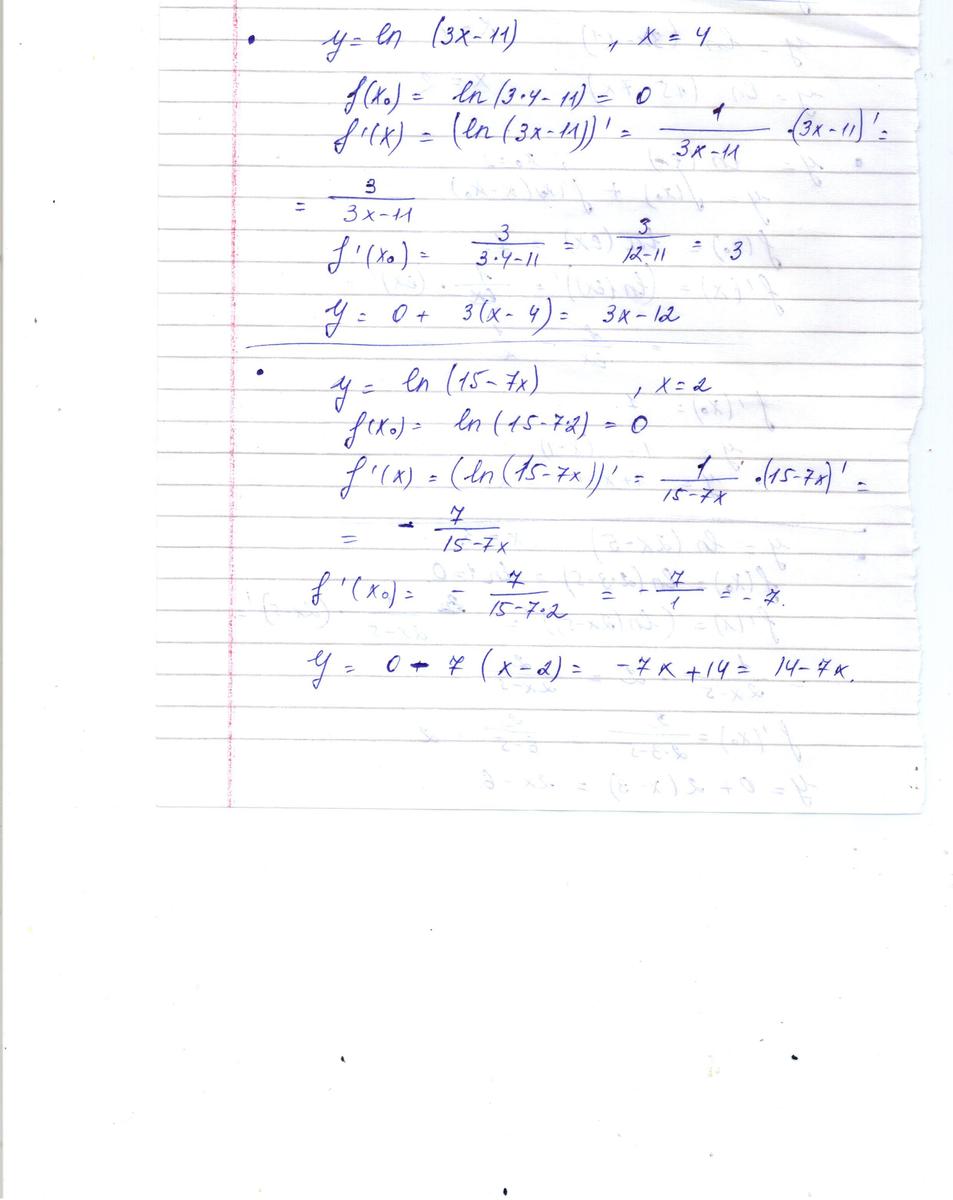 • y = ln (3x-11) , x = 4
f(x₀) = ln(3·4-11) = 0
f'(x) = (ln(3x-11))' = 1/(3x-11) · (3x-11)' =
= 3/(3x-11)
f'(x₀) = 3/(3·4-11) = 3/(12-11) = 3
y = 0 + 3(x-4) = 3x-12
• y = ln (15-7x) , x=2
f(x₀) = ln(15-7·2) = 0
f'(x) = (ln(15-7x))' = 1/(15-7x) · (15-7x)' =
= - 7/(15-7x)
f'(x₀) = - 7/(15-7·2) = - 7/1 = - 7.
y = 0 - 7 (x-2) = -7x+14 = 14-7x.